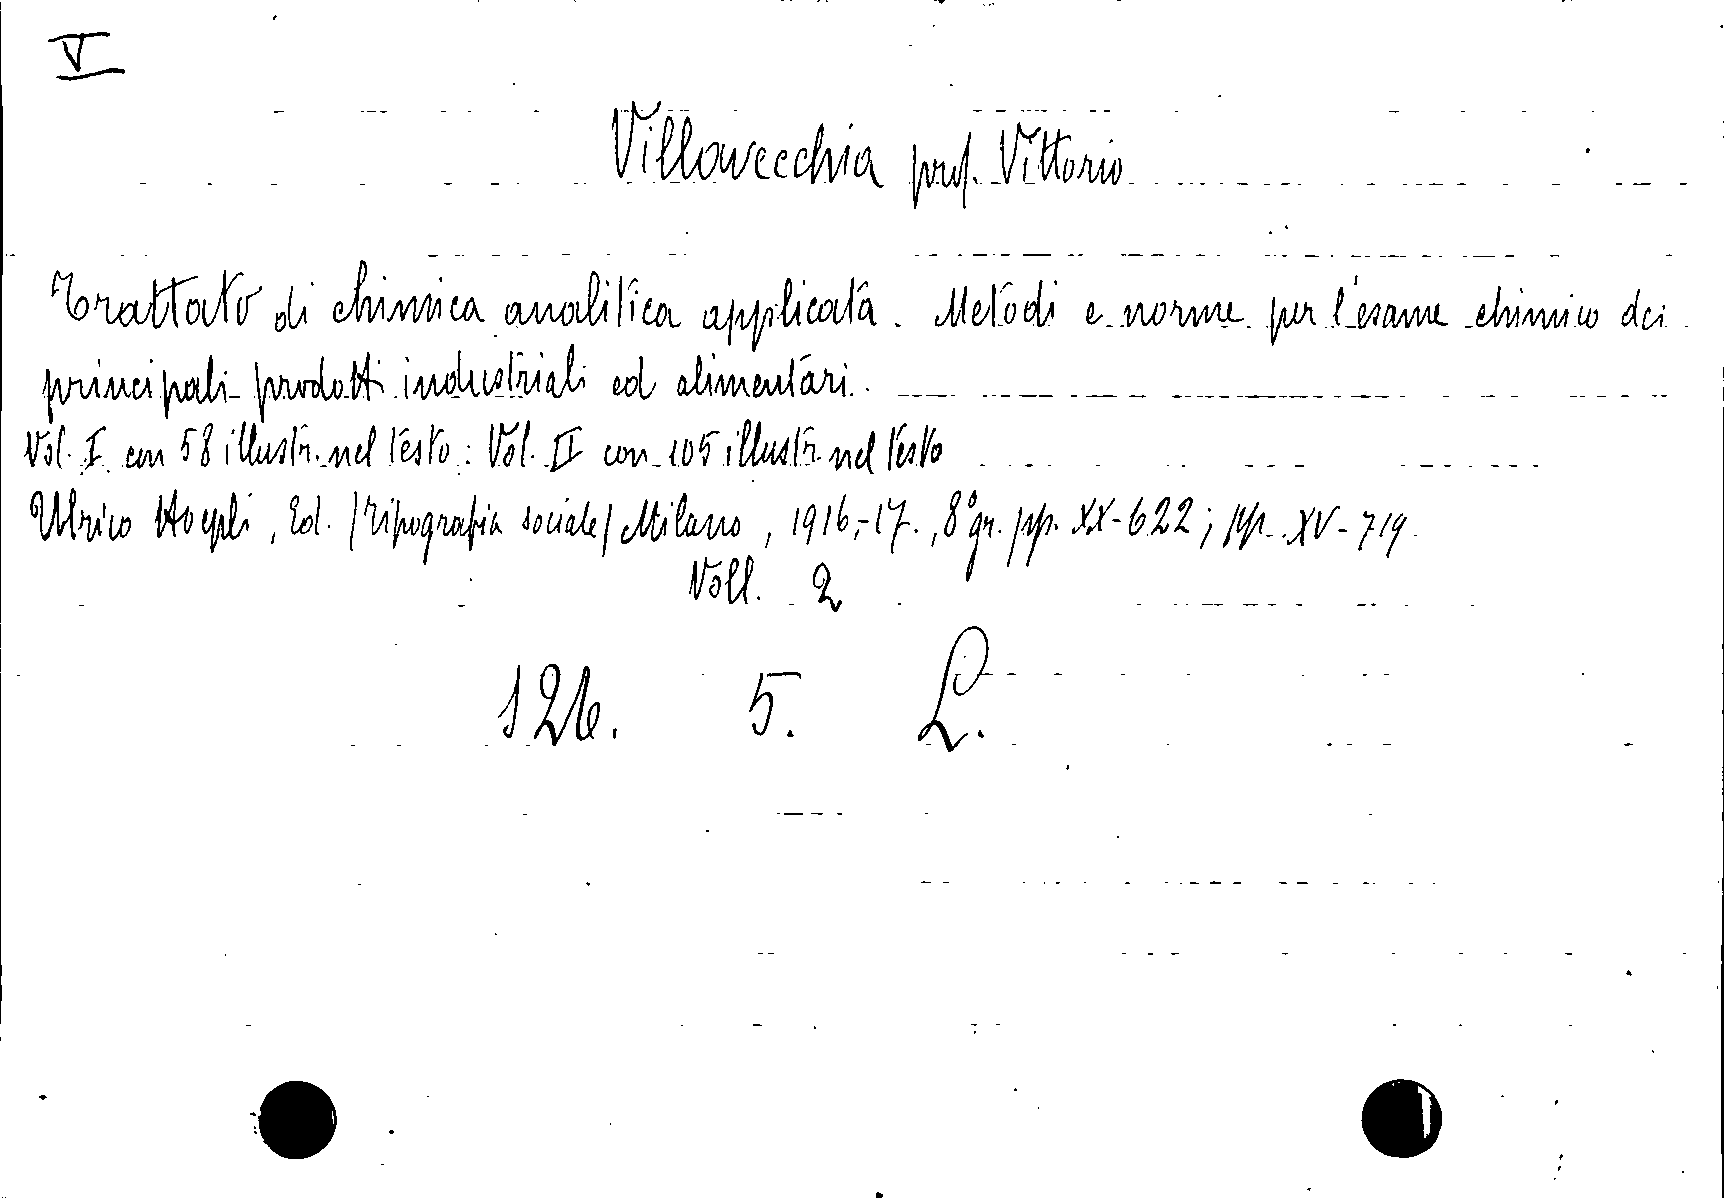 V
Villavecchia prof. Vittorio
Trattato di chimica analitica applicata. Metodi e norme per l'esame chimico dei
principali prodotti industriali ed alimentari.
Vol. I con 58 illustr. nel testo: Vol. II con 105 illustr. nel testo
Ulrico Hoepli, Ed. /Tipografia sociale/ Milano, 1916-17., 8° gr. pp. XX-622; pp. XV-719.
Voll. 2
126. 5. L.